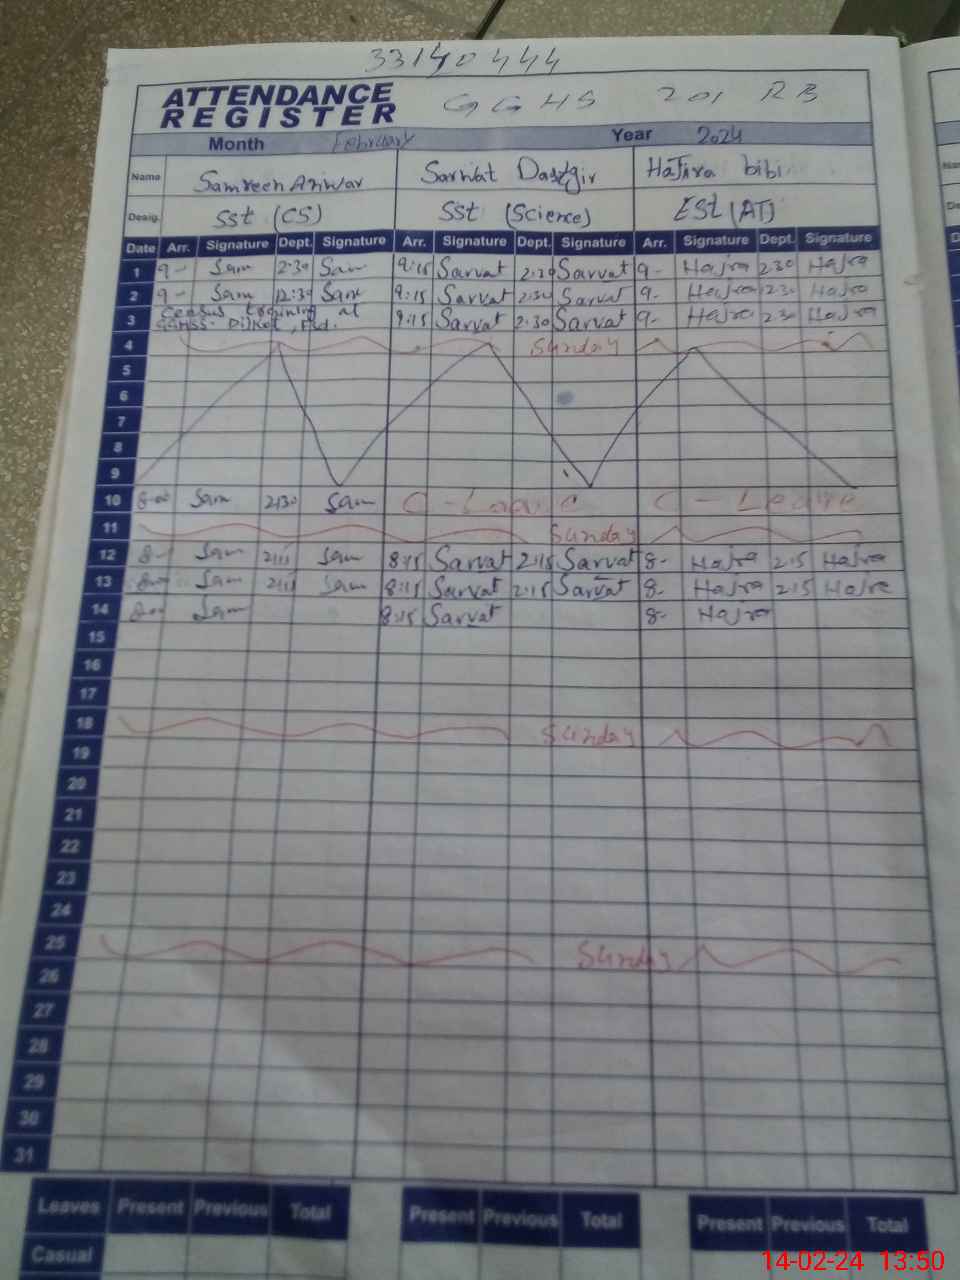 33140444
ATTENDANCE REGISTER GGHS 201 RB
Month February Year 2024
Name Samreen Anwar Sarwat Dastgir Hajira bibi
Desig. SSt (CS) SSt (Science) ESt (AT)
Date Arr. Signature Dept. Signature Arr. Signature Dept. Signature Arr. Signature Dept. Signature
1 9- Sam 2:30 Sam 9:15 Sarvat 2:30 Sarvat 9- Hajra 2:30 Hajra
2 9- Sam 12:30 Sam 9:15 Sarvat 2:30 Sarvat 9- Hajra 2:30 Hajra
3 Census training at 9:15 Sarvat 2:30 Sarvat 9- Hajra 2:30 Hajra
GGHSS
4 Sunday
5
6
7
8
9
10 8-00 Sam 2:30 Sam C-Leave C-Leave
11 Sunday
12 8- Sam 2:15 Sam 8:15 Sarvat 2:15 Sarvat 8- Hajra 2:15 Hajra
13 8-00 Sam 2:15 Sam 8:15 Sarvat 2:15 Sarvat 8- Hajra 2:15 Hajra
14 8-00 Sam 8:15 Sarvat 8- Hajra
15
16
17
18 Sunday
19
20
21
22
23
24
25 Sunday
26
27
28
29
30
31
Leaves Present Previous Total Present Previous Total Present Previous Total
Casual
14-02-24 13:50